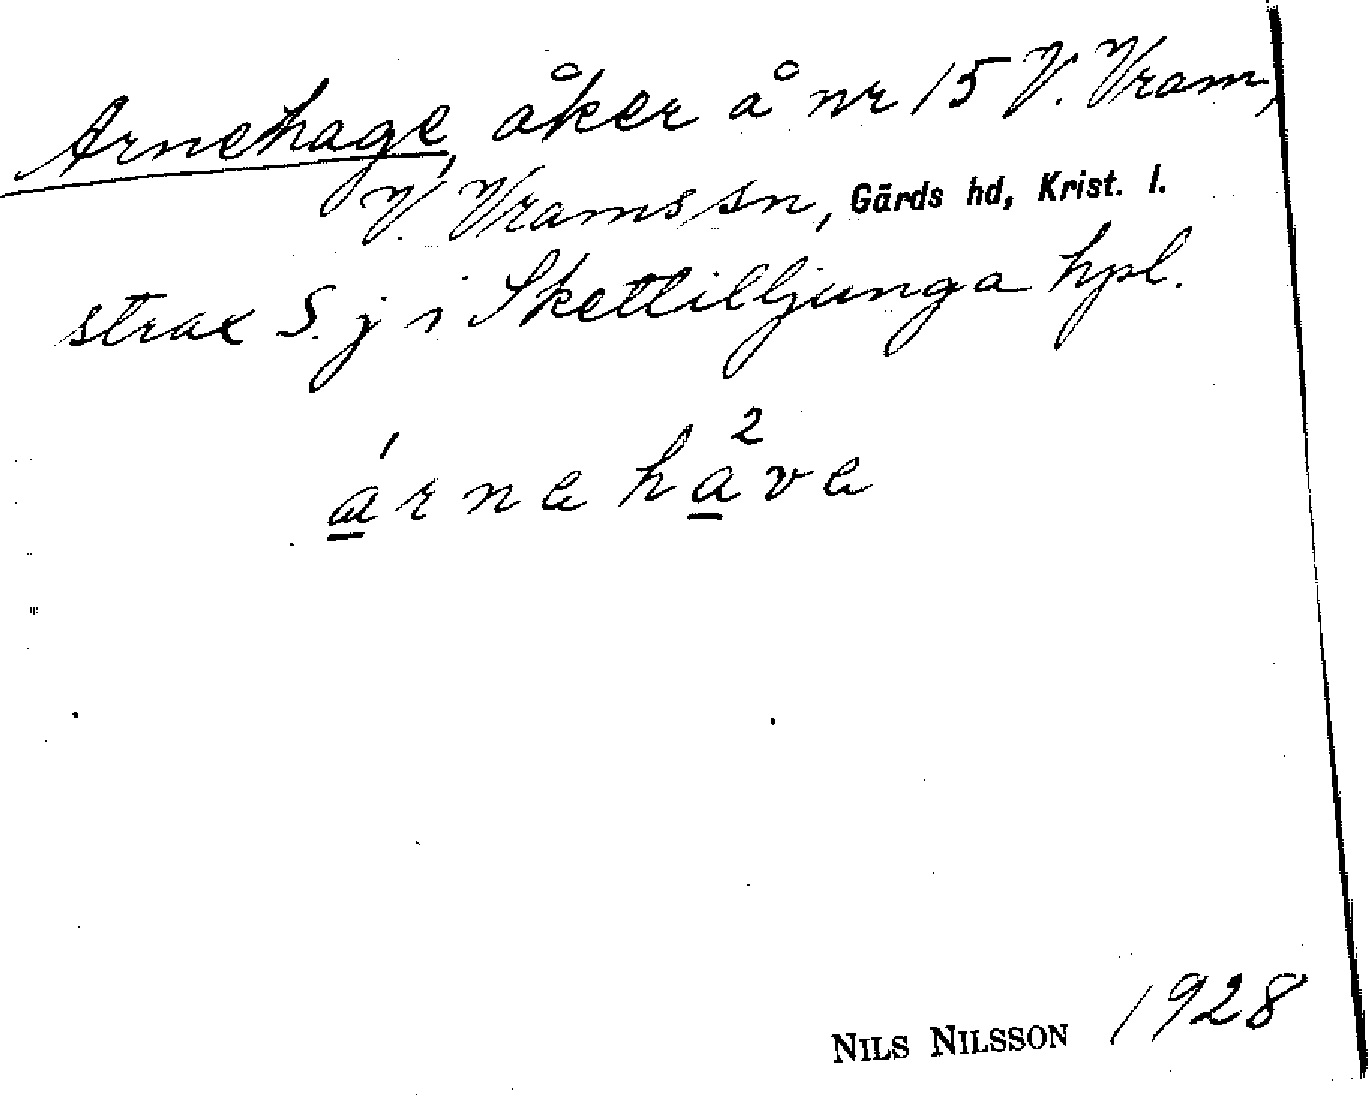 Arnehage, åker å nr 15 V. Vram,
V. Vrams sn, Gärds hd, Krist. l.
strax S. j i Skettilljunga hpl.
árna hava
1 2
NILS NILSSON 1928